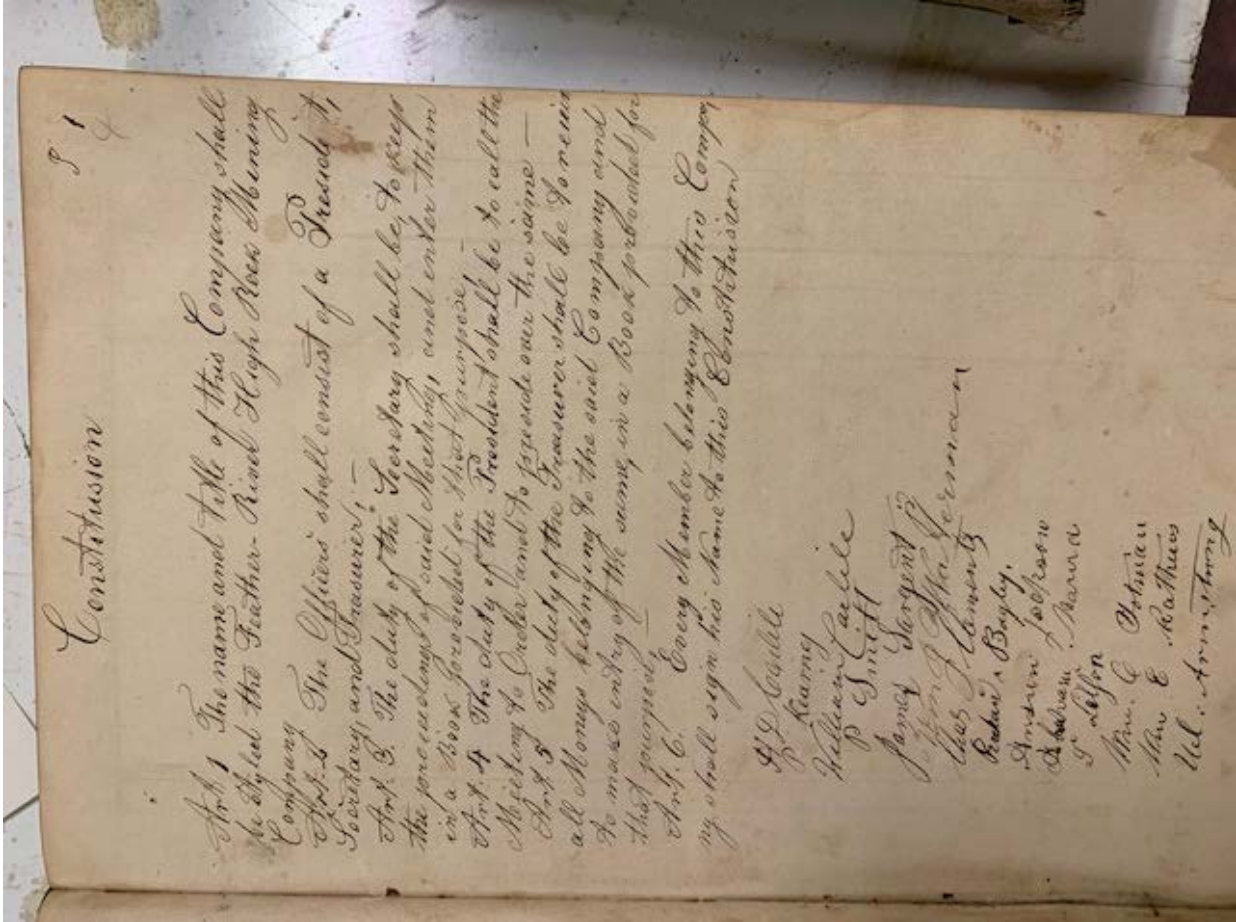 1
Constitusion
Art. 1 The name and title of this Company shall
be styled the Feather-River High Rock Mining
Company
Art. 2 The Officers shall consist of a President,
Secretary, and Treasurer,—
Art. 3. The duty of the Secretary shall be, to keep
the proceedings of said Meeting, and enter them
in a Book provided for that purpose,
Art. 4 The duty of the President shall be to call the
Meeting to Order and to preside over the same —
Art. 5 The duty of the Treasurer shall be to receive
all Moneys belonging to the said Company and
to make entry of the same, in a Book provided for
that purpose,
Art. 6. Every Member belonging to this Compa,
ny shall sign his Name to this Constitusion
Carlile
Kearney
William Carlile
P Smith
James Sargent
John J
Chas J
Bagley,
Jackson
Wm. C
Wm E Mathews
Armstrong